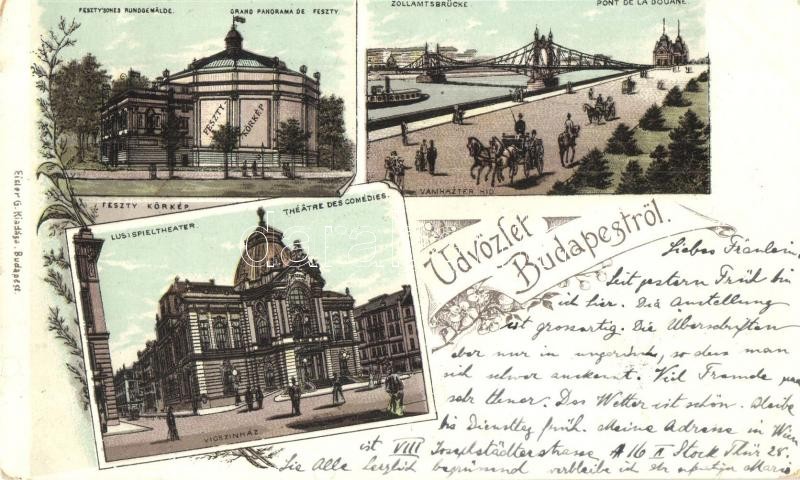 FESZTY'SCHES RUNDGEMÄLDE.
GRAND PANORAMA DE FESZTY.
FESZTY KÖRKÉP
FESZTY KÖRKÉP
ZOLLAMTSBRÜCKE
PONT DE LA DOUANE.
VÁMHÁZTÉR HID
LUSTSPIELTHEATER.
THÉÂTRE DES COMÉDIES.
VIGSZINHÁZ
Eisler G. Kiadása. Budapest
Üdvözlet
Budapestről.
Liebes Fräulein
Seit gestern Früh bin
ich hier. Die Ausstellung
ist grossartig. Die Überschriften
aber nur in ungarisch, so dass man
sich schwer auskennt. Viel Fremde
sehr theuer. Das Wetter ist schön. Bleibe
bis Dienstag früh. Meine Adresse in Wien
ist VIII Josefstädterstrasse II Stock Thür 28.
Sie Alle herzlich verbleibe ich Marie